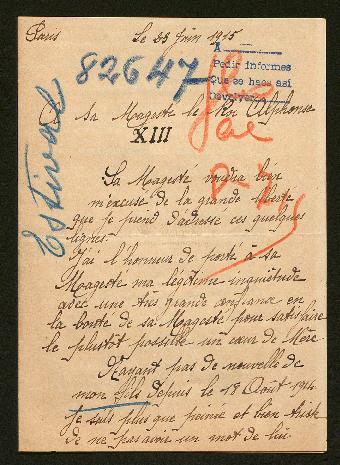 Paris
Le 23 Juin 1915
A
Pedir informes
Que se hace así
Devolver
82647
Estivale
A sa Magesté le Roi Alphonse
XIII
Sa Magesté voudra bien
m'excusé de la grande liberté
que je prend d'adressé ces quelques
lignes.
J'ai l'honneur de porté à sa
Magesté ma légitime inquiétude
avec une très grande confiance en
la bonté de sa Magesté pour satisfaire
le plustôt possible un cœur de Mère.
N'ayant pas de nouvelle de
mon fils depuis le 18 Août 1914
je suis plus que peinée et bien triste
de ne pas avoir un mot de lui.